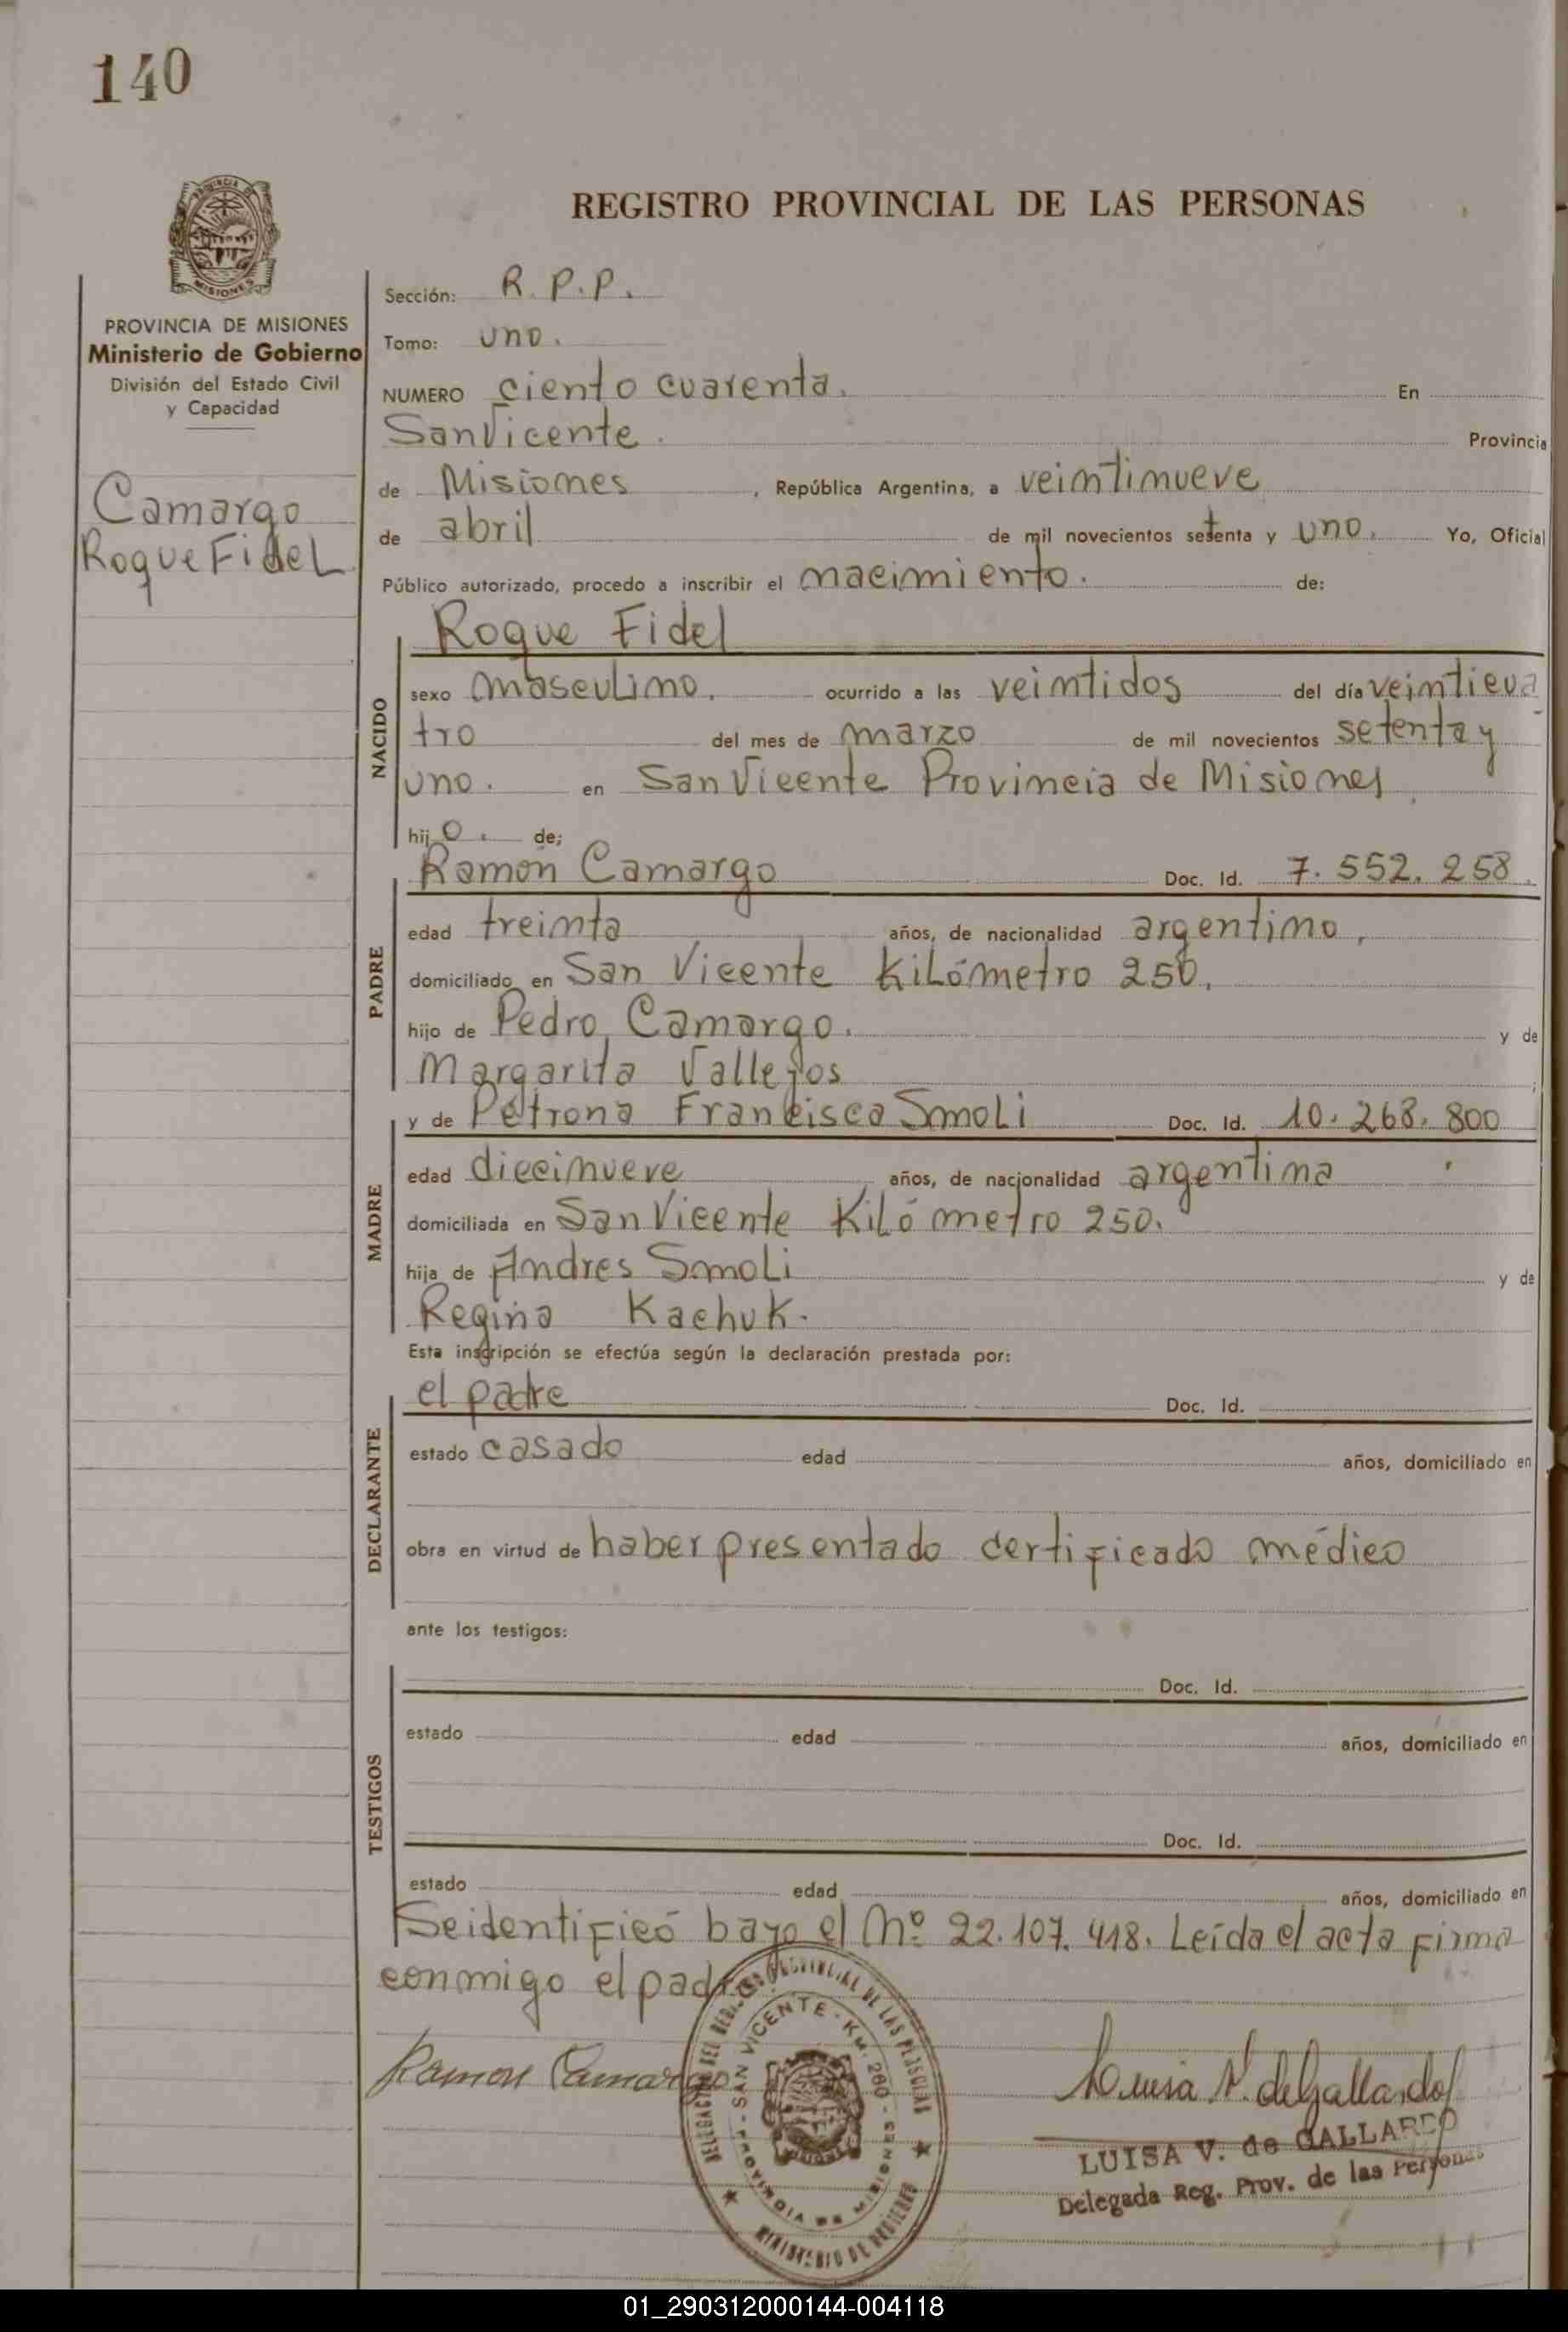 140
PROVINCIA DE MISIONES
Ministerio de Gobierno
División del Estado Civil
y Capacidad
Camargo
Roque Fidel
REGISTRO PROVINCIAL DE LAS PERSONAS
Sección: R. P. P.
Tomo: uno.
NUMERO ciento cuarenta. En
San Vicente. Provincia
de Misiones, República Argentina, a veintinueve
de abril de mil novecientos setenta y uno. Yo, Oficial
Público autorizado, procedo a inscribir el nacimiento. de:
Roque Fidel
NACIDO
sexo masculino. ocurrido a las veintidos del día veinticua
tro del mes de marzo de mil novecientos setenta y
uno. en San Vicente Provincia de Misiones
hijo. de;
PADRE
Ramón Camargo Doc. Id. 7.552.258.
edad treinta años, de nacionalidad argentino,
domiciliado en San Vicente Kilómetro 250.
hijo de Pedro Camargo. y de
Margarita Vallejos ;
MADRE
y de Petrona Francisca Smoli Doc. Id. 10.268.800
edad diecinueve años, de nacionalidad argentina
domiciliada en San Vicente Kilómetro 250.
hija de Andres Smoli y de
Regina Kachuk.
Esta inscripción se efectúa según la declaración prestada por:
DECLARANTE
el padre Doc. Id.
estado casado edad años, domiciliado en
obra en virtud de haber presentado certificado médico
ante los testigos:
TESTIGOS
Doc. Id.
estado edad años, domiciliado en
Doc. Id.
estado edad años, domiciliado en
Se identificó bajo el Nº 22.107.418. Leída el acta firma
conmigo el padre.
Ramon Camargo
DELEGACION DEL REGISTRO PROVINCIAL DE LAS PERSONAS
SAN VICENTE - KM. 260 - PROVINCIA DE MISIONES
MINISTERIO DE GOBIERNO
Luisa V. de Gallardo
LUISA V. de GALLARDO
Delegada Reg. Prov. de las Personas
01_290312000144-004118